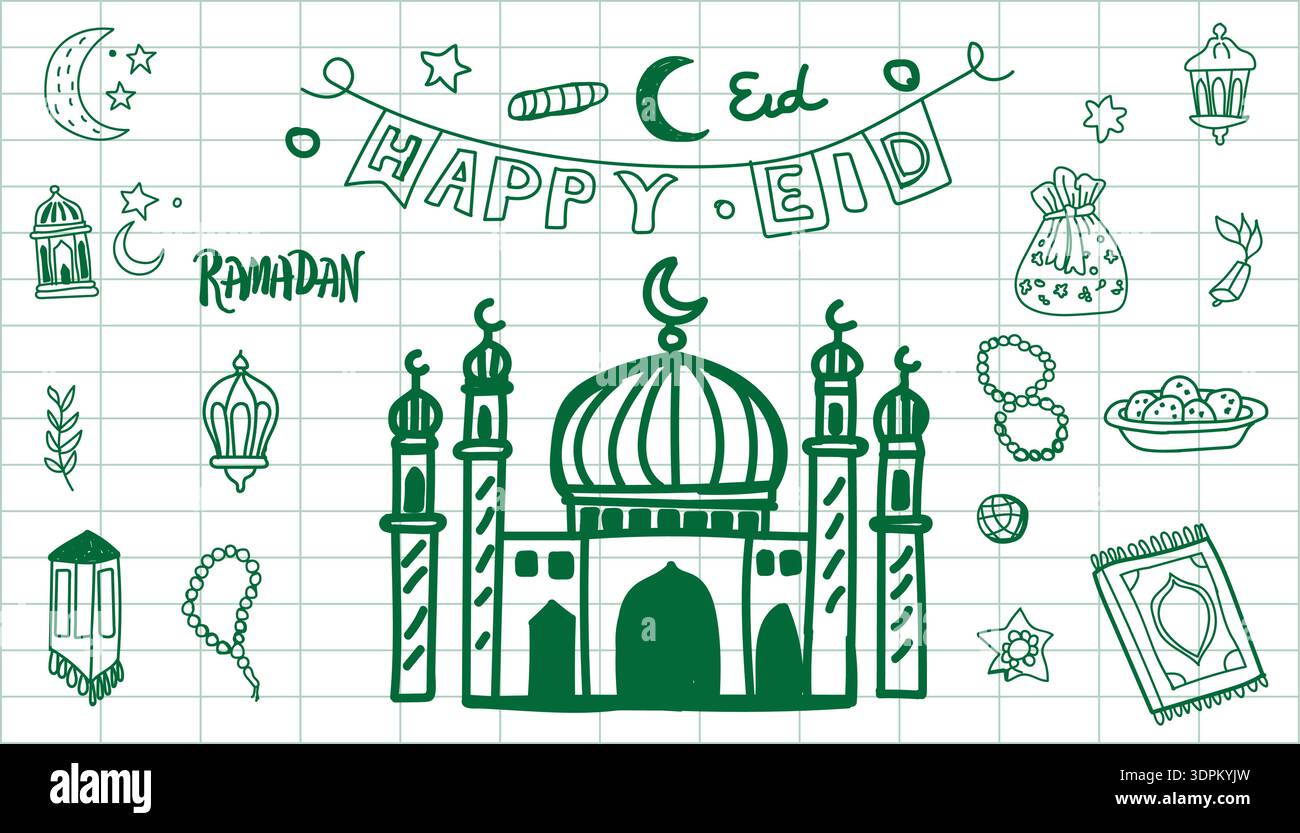 Eid
HAPPY EID
RAMADAN
alamy
Image ID: 3DPKYJW
www.alamy.com